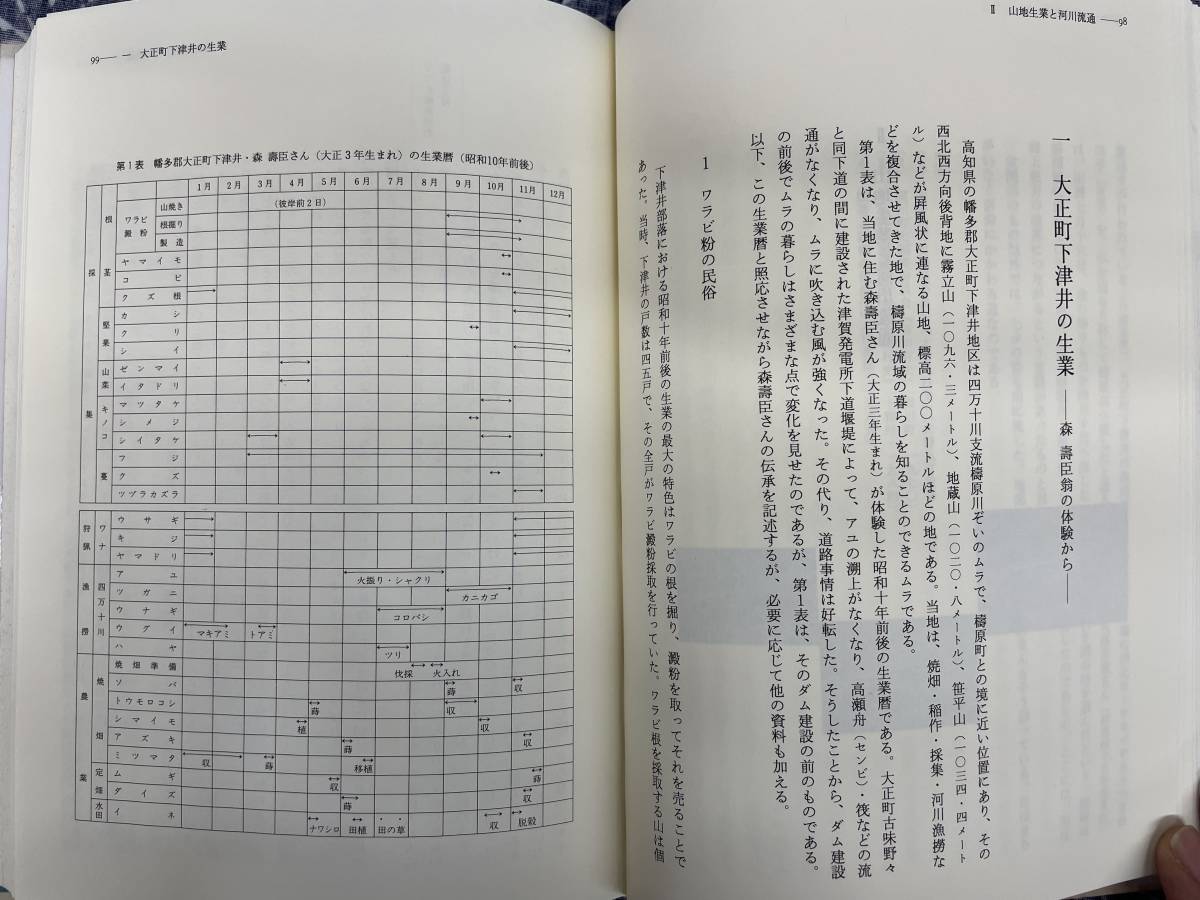 Ⅱ 山地生業と河川流通 ──98
一 大正町下津井の生業 ──森 壽臣翁の体験から──
高知県の幡多郡大正町下津井地区は四万十川支流檮原川ぞいのムラで、檮原町との境に近い位置にあり、その
西北西方向後背地に霧立山（一〇九六・三メートル）、地蔵山（一〇二〇・八メートル）、笹平山（一〇三四・四メート
ル）などが屏風状に連なる山地、標高二〇〇メートルほどの地である。当地は、焼畑・稲作・採集・河川漁撈な
どを複合させてきた地で、檮原川流域の暮らしを知ることのできるムラである。
第1表は、当地に住む森壽臣さん（大正三年生まれ）が体験した昭和十年前後の生業暦である。大正町古味野々
と同下道の間に建設された津賀発電所下道堰堤によって、アユの溯上がなくなり、高瀬舟（センビ）・筏などの流
通がなくなり、ムラに吹き込む風が強くなった。その代り、道路事情は好転した。そうしたことから、ダム建設
の前後でムラの暮らしはさまざまな点で変化を見せたのであるが、第1表は、そのダム建設の前のものである。
以下、この生業暦と照応させながら森壽臣さんの伝承を記述するが、必要に応じて他の資料も加える。
1 ワラビ粉の民俗
下津井部落における昭和十年前後の生業の最大の特色はワラビの根を掘り、澱粉を取ってそれを売ることで
あった。当時、下津井の戸数は四五戸で、その全戸がワラビ澱粉採取を行っていた。ワラビ根を採取する山は個
99── 一 大正町下津井の生業
第1表 幡多郡大正町下津井・森 壽臣さん（大正3年生まれ）の生業暦（昭和10年前後）
1月 2月 3月 4月 5月 6月 7月 8月 9月 10月 11月 12月
採集 根茎 ワラビ澱粉 山焼き （彼岸前2日）
根掘り
製造
ヤマイモ
コビ
クズ根
堅果 カシ
クリ
シイ
山菜 ゼンマイ
イタドリ
キノコ マツタケ
シメジ
シイタケ
蔓 フジ
クズ
ツヅラカズラ
狩猟 ワナ ウサギ
キジ
ヤマドリ
漁撈 四万十川 アユ 火振り・シャクリ
ツガニ カニカゴ
ウナギ コロバシ
ウグイ マキアミ トアミ
ハヤ ツリ
農業 焼畑 焼畑準備 伐採 火入れ
ソバ 蒔 収
トウモロコシ 蒔 収
シマイモ 植 収
アズキ 蒔 収
ミツマタ 収 蒔 移植
定畑 ムギ 収 蒔
ダイズ 蒔 収
水田 イネ ナワシロ 田植 田の草 収 脱穀